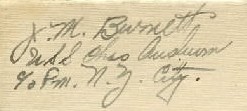 J. M. Burnett
USS Chas Ausburn
c/o P.m. N.Y. City.